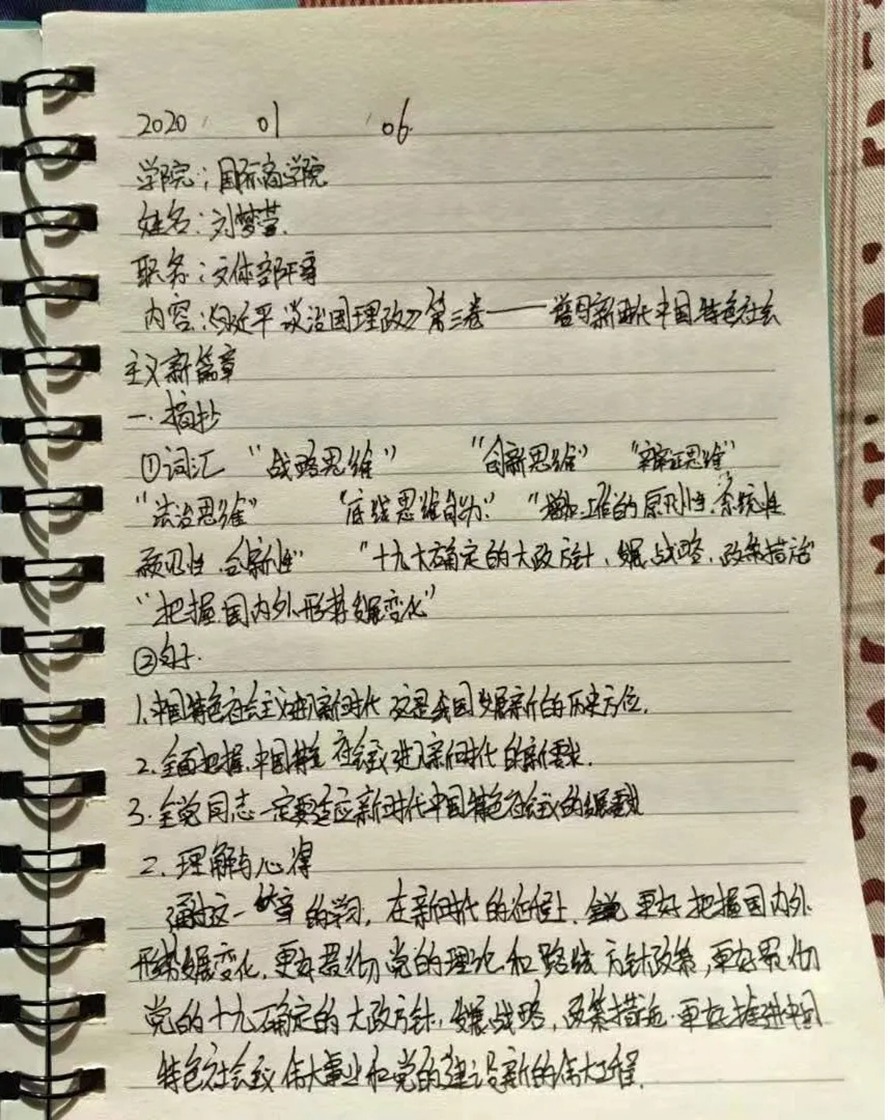 2020 01 06
学院：国际商学院
姓名：刘梦莹.
职务：文体部干事
内容：《习近平谈治国理政》第三卷——谱写新时代中国特色社会
主义新篇章
一.摘抄
①词汇 “战略思维” “创新思维” “辩证思维”
“法治思维” “底线思维能力” “增加工作的原则性、系统性
预见性、创新性” “十九大确定的大政方针、发展战略、政策措施
“把握国内外形势发展变化”
②句子.
1.中国特色社会主义进入新时代 这是我国发展新的历史方位.
2.全面把握中国特色社会主义进入新时代的新要求.
3.全党同志一定要适应新时代中国特色社会主义的发展要求
2.理解与心得
通过这一 章的学习，在新时代的征程上. 全党更好把握国内外
形势发展变化，更好贯彻党的理论和路线方针政策，更好贯彻
党的十九大确定的大政方针，发展战略，政策措施.更好推进中国
特色社会主义伟大事业和党的建设新的伟大工程.